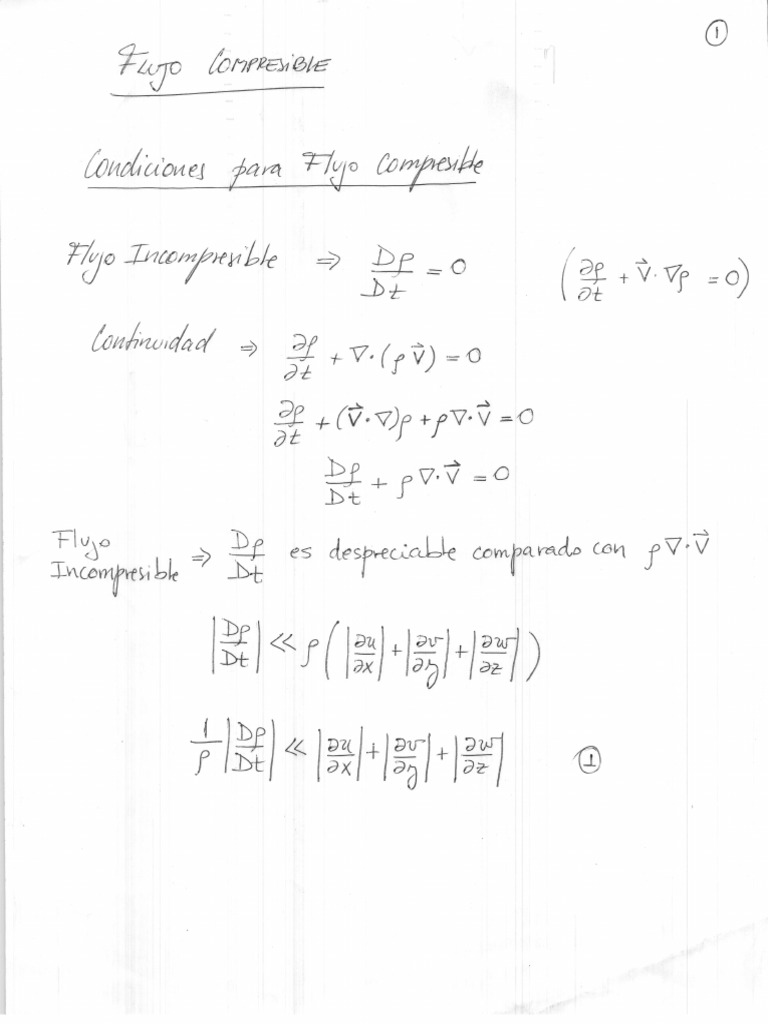 ①
FLUJO COMPRESIBLE
Condiciones para Flujo Compresible
Flujo Incompresible ⇒ Dρ/Dt = 0 (∂ρ/∂t + V⃗·∇ρ = 0)
Continuidad ⇒ ∂ρ/∂t + ∇·(ρV⃗) = 0
∂ρ/∂t + (V⃗·∇)ρ + ρ∇·V⃗ = 0
Dρ/Dt + ρ∇·V⃗ = 0
Flujo Incompresible ⇒ Dρ/Dt es despreciable comparado con ρ∇·V⃗
|Dρ/Dt| << ρ(|∂u/∂x| + |∂v/∂y| + |∂w/∂z|)
1/ρ |Dρ/Dt| << |∂u/∂x| + |∂v/∂y| + |∂w/∂z| ①